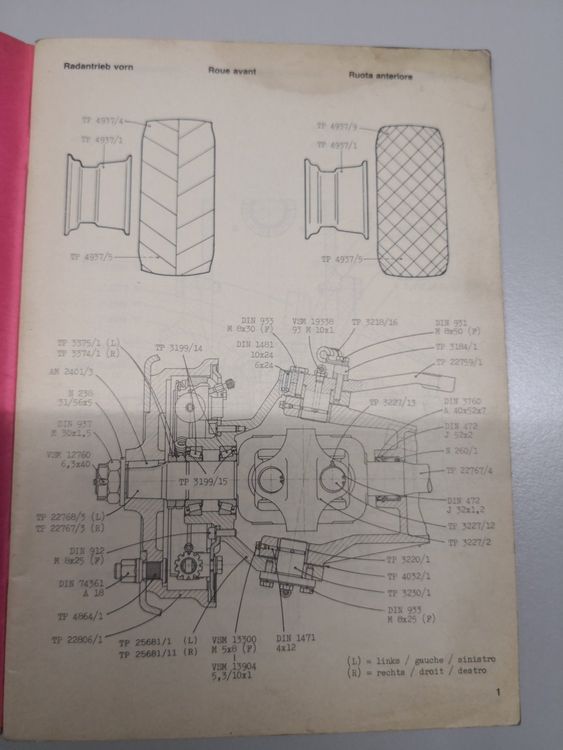 Radantrieb vorn
Roue avant
Ruota anteriore
TP 4937/4
TP 4937/1
TP 4937/5
TP 4937/9
TP 4937/1
TP 4937/5
DIN 933
M 8x30 (F)
VSM 19338
93 M 10x1
TP 3218/16
DIN 931
M 8x50 (F)
TP 3375/1 (L)
TP 3374/1 (R)
TP 3199/14
DIN 1481
10x24
6x24
TP 3184/1
TP 22759/1
AM 2401/3
N 238
31/56x5
TP 3227/13
DIN 3760
A 40x52x7
DIN 937
M 30x1,5
DIN 472
J 52x2
N 260/1
VSM 12760
6,3x40
TP 3199/15
TP 22767/4
DIN 472
J 32x1,2
TP 22768/3 (L)
TP 22767/3 (R)
TP 3227/12
TP 3227/2
DIN 912
M 8x25 (F)
TP 3220/1
TP 4032/1
DIN 74361
A 18
TP 3230/1
TP 4864/1
DIN 933
M 8x25 (F)
TP 22806/1
TP 25681/1 (L)
TP 25681/11 (R)
VSM 13300
M 5x8 (F)
VSM 13904
5,3/10x1
DIN 1471
4x12
(L) = links / gauche / sinistro
(R) = rechts / droit / destro
1